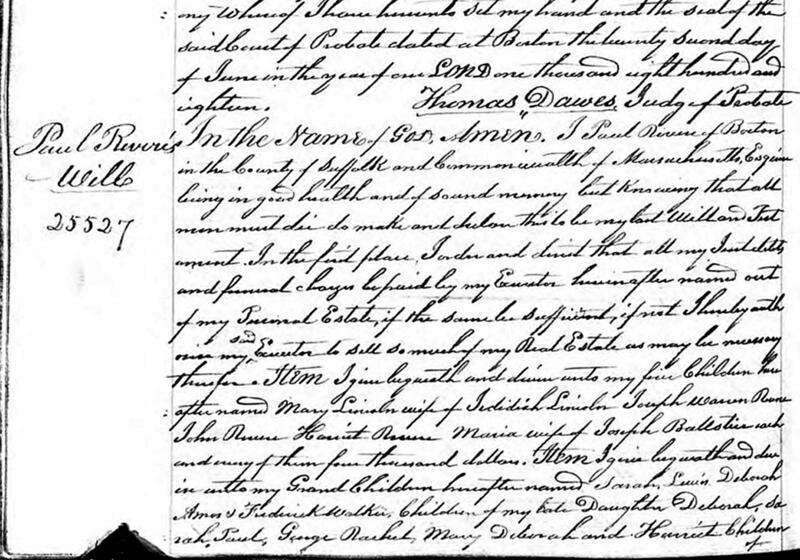 ony Whereof I have hereunto set my hand and the seal of the
said Court of Probate dated at Boston the twenty second day
of June in the year of our LORD one thousand eight hundred and
eighteen. Thomas Dawes, Judge of Probate
Paul Revere's
Will
25527
In the Name of God, Amen. I Paul Revere of Boston
in the County of Suffolk and Commonwealth of Massachusetts, Esquire
being in good health and of sound memory but knowing that all
men must die do make and declare this to be my last Will and Test
ament. In the first place, I order and direct that all my Just debts
and funeral charges be paid by my Executor hereinafter named out
of my Personal Estate, if the same be sufficient, if not I hereby auth
orise my said Executor to sell so much of my Real Estate as may be necessary
therefor. Item I give bequeath and devise unto my five Children here
after named Mary Lincoln wife of Jedidiah Lincoln Joseph Warren Revere
John Revere Harriet Revere Maria wife of Joseph Balestier each
and every of them four thousand dollars. Item I give bequeath and dev
ise unto my Grand Children hereafter named Sarah, Lewis Deborah
Amos & Frederick Walker, Children of my late Daughter Deborah, Sa
rah, Paul, George Rachel, Mary Deborah and Harriet Children
of